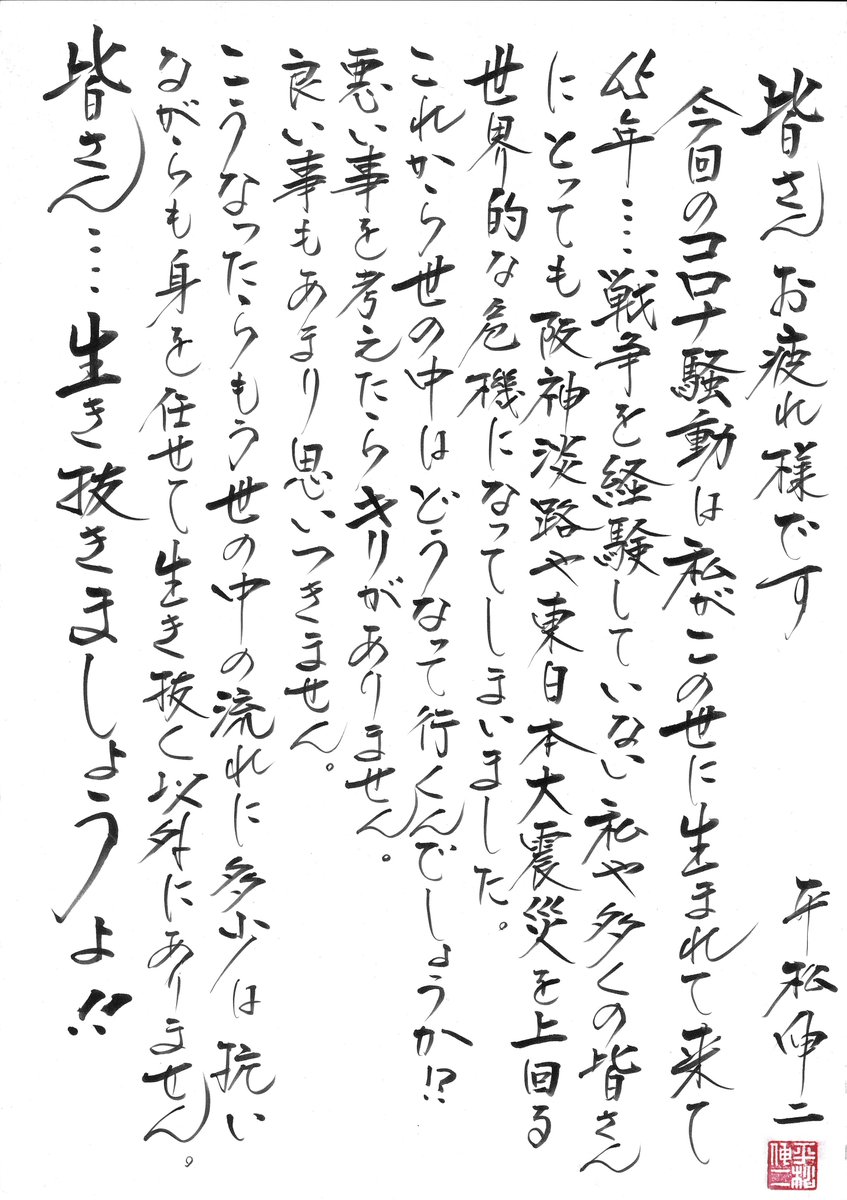 皆さんお疲れ様です
平松伸二
今回のコロナ騒動は私がこの世に生まれて来て
65年…戦争を経験していない私や多くの皆さん
にとっても阪神淡路や東日本大震災を上回る
世界的な危機になってしまいました。
これから世の中はどうなって行くんでしょうか!?
悪い事を考えたらキリがありません。
良い事もあまり思いつきません。
こうなったらもう世の中の流れに多少は抗い
ながらも身を任せて生き抜く以外にありません。
皆さん…生き抜きましょうよ!!
平松伸二